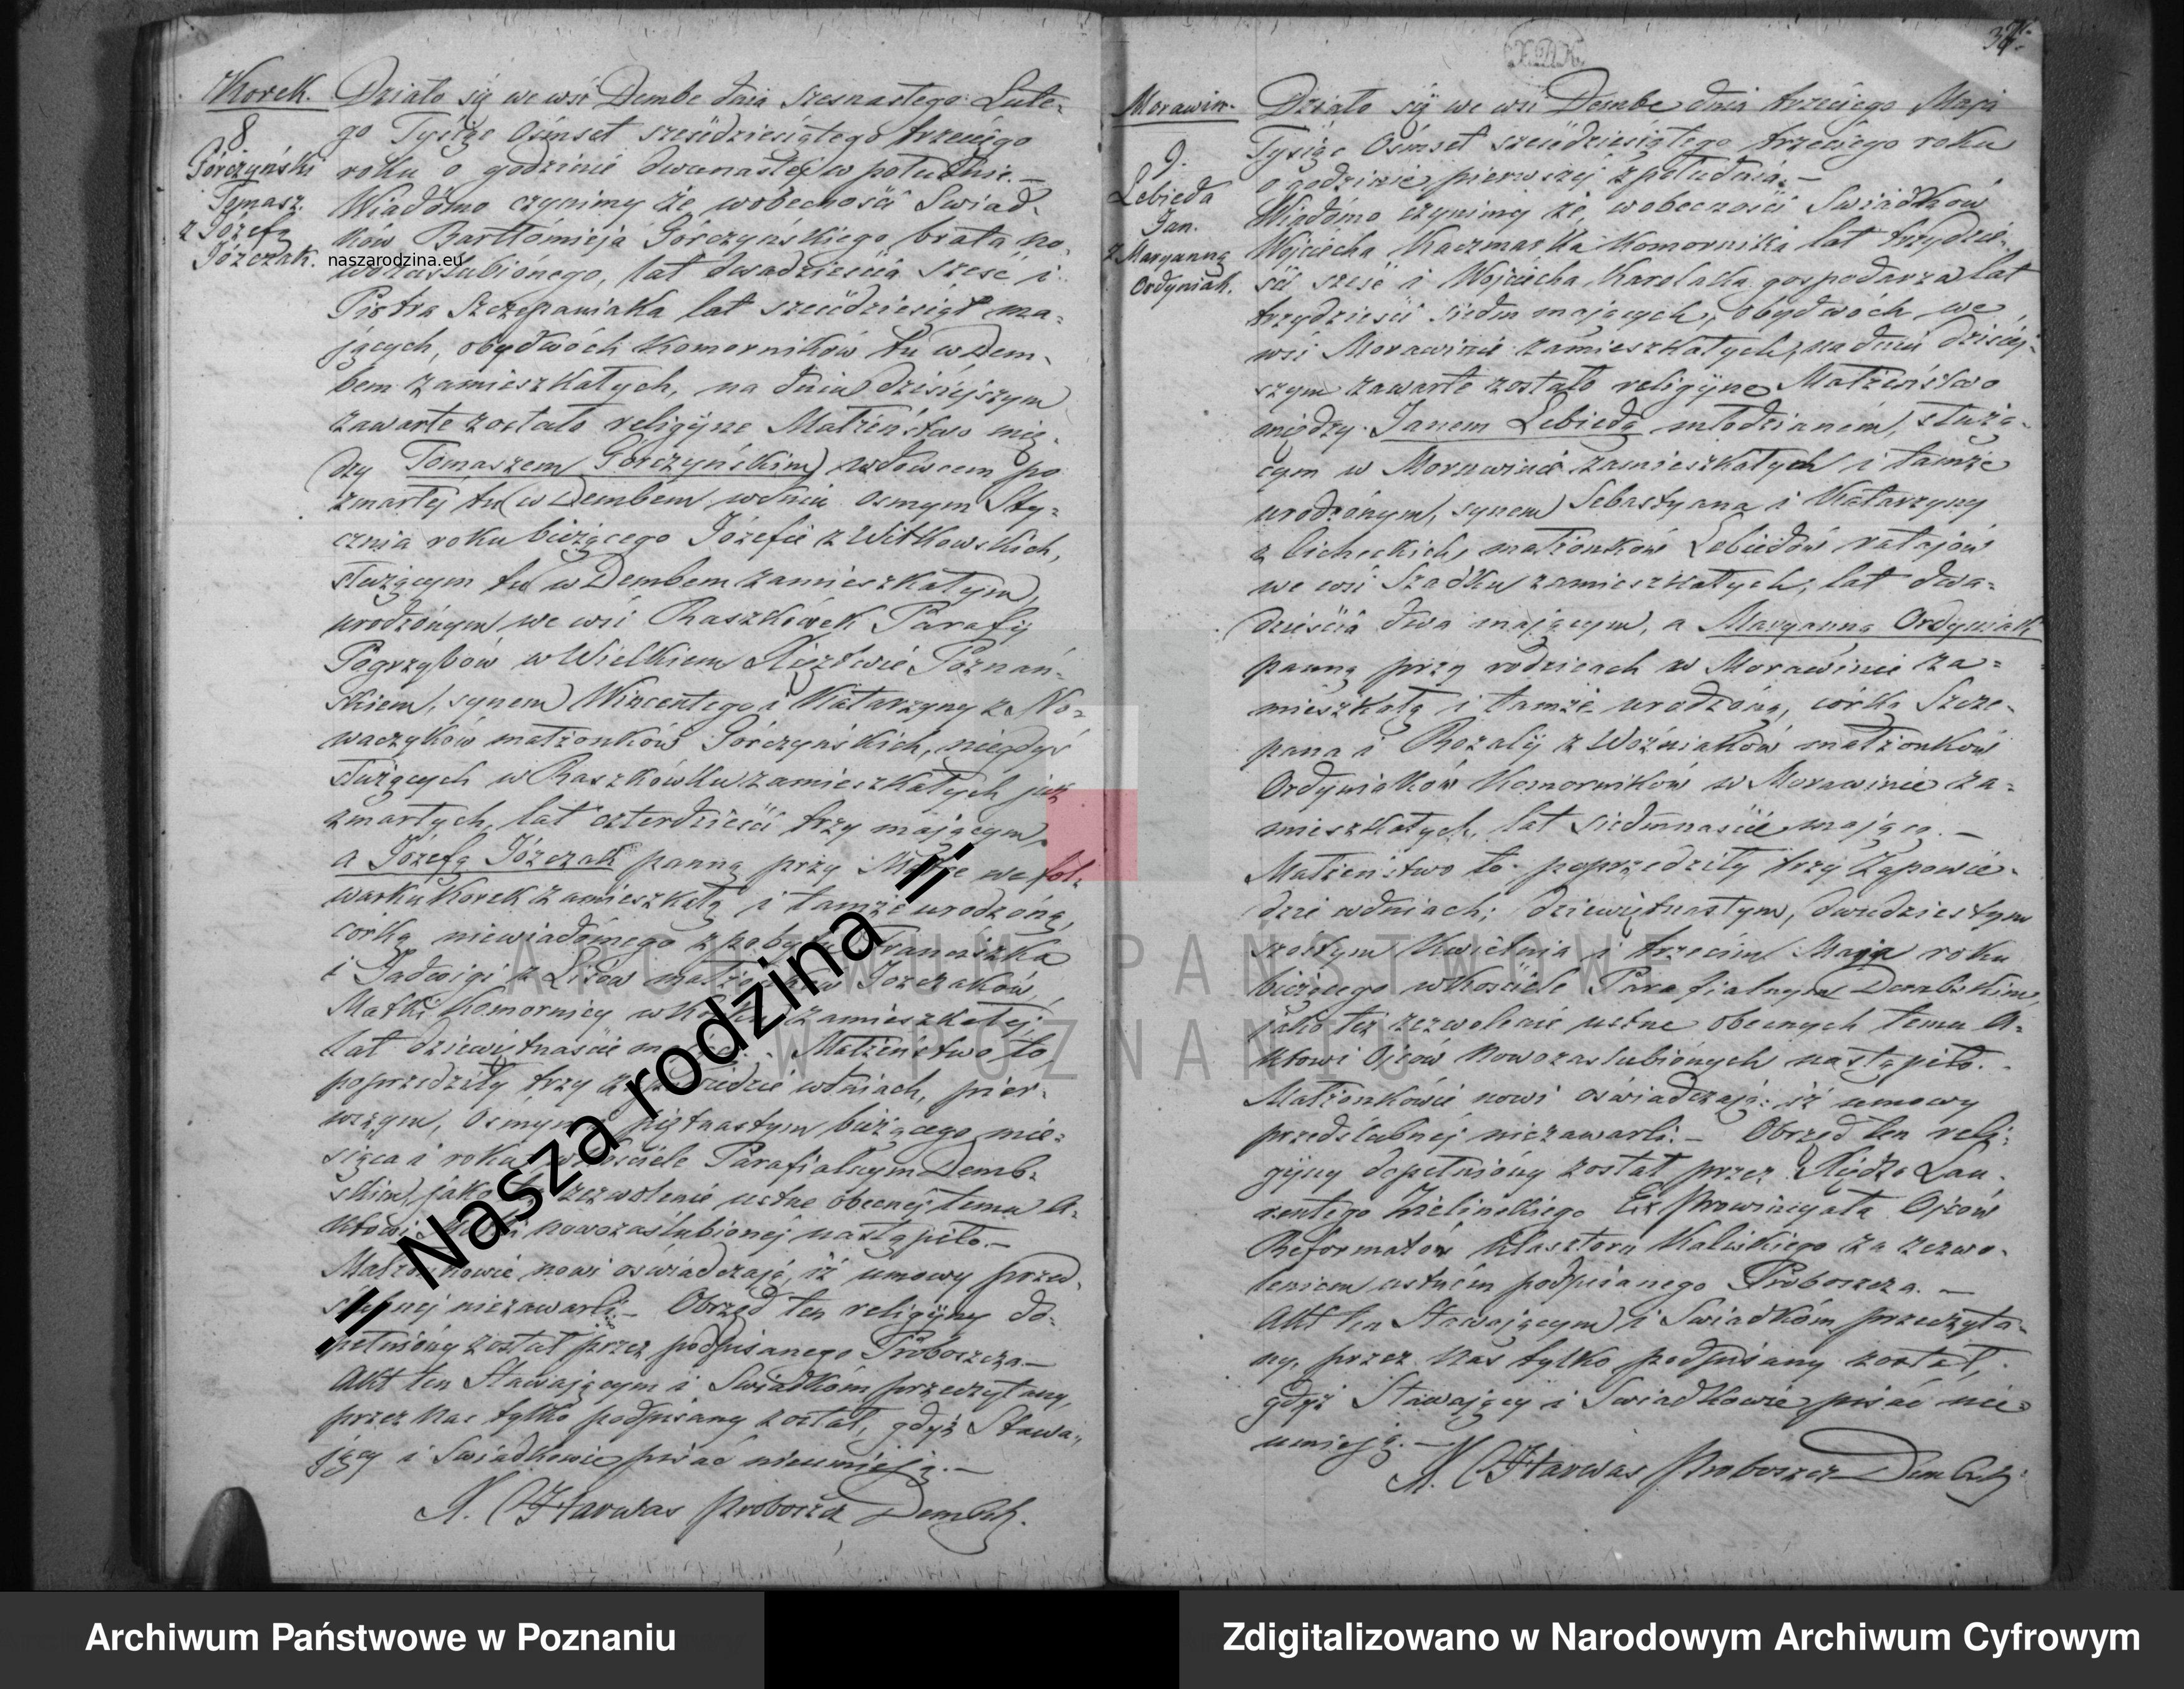 Korek.
8
Górczyński
Tomasz.
z Józefą
Józczak.
naszarodzina.eu
Działo się we wsi Dembe dnia szesnastego Lute-
go Tysiąc Ośmset sześćdziesiątego trzeciego
roku o godzinie dwunastej w południe. —
Wiadomo czynimy że wobecności Świad-
ków Bartłomieja Górczyńskiego brata no-
wozaślubionego, lat dwadzieścia sześć i
Piotra Szczepaniaka lat sześćdziesiąt ma-
jących, obydwóch Komorników tu w Dem-
bem zamieszkałych, na dniu dzisiejszym
zawarte zostało religijne Małżeństwo mię-
dzy Tomaszem Górczyńskim, wdowcem po
zmarłej tu w Dembem wdniu ósmym Sty-
cznia roku bieżącego Józefie z Witkowskich,
służącym tu w Dembem zamieszkałym,
urodzonym we wsi Raszkówek Parafij
Pogrzybów w Wielkiem Xięztwie Poznań-
skiem, synem Wincentego i Katarzyny z No-
waczyków małżonków Górczyńskich, niegdyś
służących w Raszkówku zamieszkałych już
zmarłych, lat czterdzieści trzy mającym,
a Józefą Józczak panną przy Matce we fol-
warku Korek zamieszkałą i tamże urodzoną,
córką niewiadomego z pobytu Franciszka
i Jadwigi z Lisów małżonków Józczaków,
Matki Komornicy w Korku zamieszkałej,
lat dziewiętnaście mającą. Małżeństwo to
poprzedziły trzy zapowiedzie wdniach, pier-
wszym, ósmym i piętnastym bieżącego mie-
siąca i roku w Kościele Parafialnym Demb-
skim, jako też zezwolenie ustne obecnej temu A-
ktowi Matki nowozaślubionej nastąpiło. —
Małżonkowie nowi oświadczają, iż umowy przed-
ślubnej niezawarli. — Obrzęd ten religijny do-
pełniony został przez podpisanego Proboszcza. —
Akt ten Stawającym i Świadkom przeczytany,
przez Nas tylko podpisany został, gdyż Stawa-
jący i Świadkowie pisać nieumieją. —
N. Harwas Proboszcz Dembski.
Morawin.
9.
Lebieda
Jan.
z Maryanną
Ordyniak.
Działo się we wsi Dembe dnia trzeciego Maja
Tysiąc Ośmset sześćdziesiątego trzeciego roku
o godzinie pierwszej z południa. —
Wiadomo czynimy że, wobecności Świadków
Wojciecha Kaczmarka Komornika lat trzydzie-
ści sześć i Wojciecha Karolaka gospodarza lat
trzydzieści siedm mających, obydwóch we
wsi Morawinie zamieszkałych, na dniu dzisiej-
szym zawarte zostało religijne Małżeństwo
między Janem Lebiedą młodzianem, służą-
cym w Morawinie zamieszkałym i tamże
urodzonym, synem Sebastyana i Katarzyny
z Cicheckich, małżonków Lebiedów ratajów
we wsi Szadku zamieszkałych, lat dwa-
dzieścia dwa mającym, a Maryanną Ordyniak
panną przy rodzicach w Morawinie za-
mieszkałą i tamże urodzoną, córką Szcze-
pana i Rozalij z Woźniaków małżonków
Ordyniaków Komorników w Morawinie za-
mieszkałych, lat siedmnaście mającą. —
Małżeństwo to poprzedziły trzy Zapowie-
dzie wdniach; dziewiętnastym, dwudziestym
szóstym Kwietnia i trzecim Maja roku
bieżącego w Kościele Parafialnym Dembskim,
jako też zezwolenie ustne obecnych temu A-
ktowi Ojców Nowozaślubionych nastąpiło. -
Małżonkowie nowi oświadczają; iż umowy
przedślubnej niezawarli. — Obrzęd ten reli-
gijny dopełniony został przez Xiędza Lau-
rentego Zielinskiego Ex Prowincyała Ojców
Reformatów Klasztoru Kaliskiego za zezwo-
leniem ustnem podpisanego Proboszcza. —
Akt ten Stawającym i Świadkom przeczyta-
ny, przez Nas tylko podpisany został,
gdyż Stawający i Świadkowie pisać nie
umieją. —
N. Harwas Proboszcz Dembski
ARCHIWUM PAŃSTWOWE
W POZNANIU
"Nasza rodzina"
Archiwum Państwowe w Poznaniu
Zdigitalizowano w Narodowym Archiwum Cyfrowym